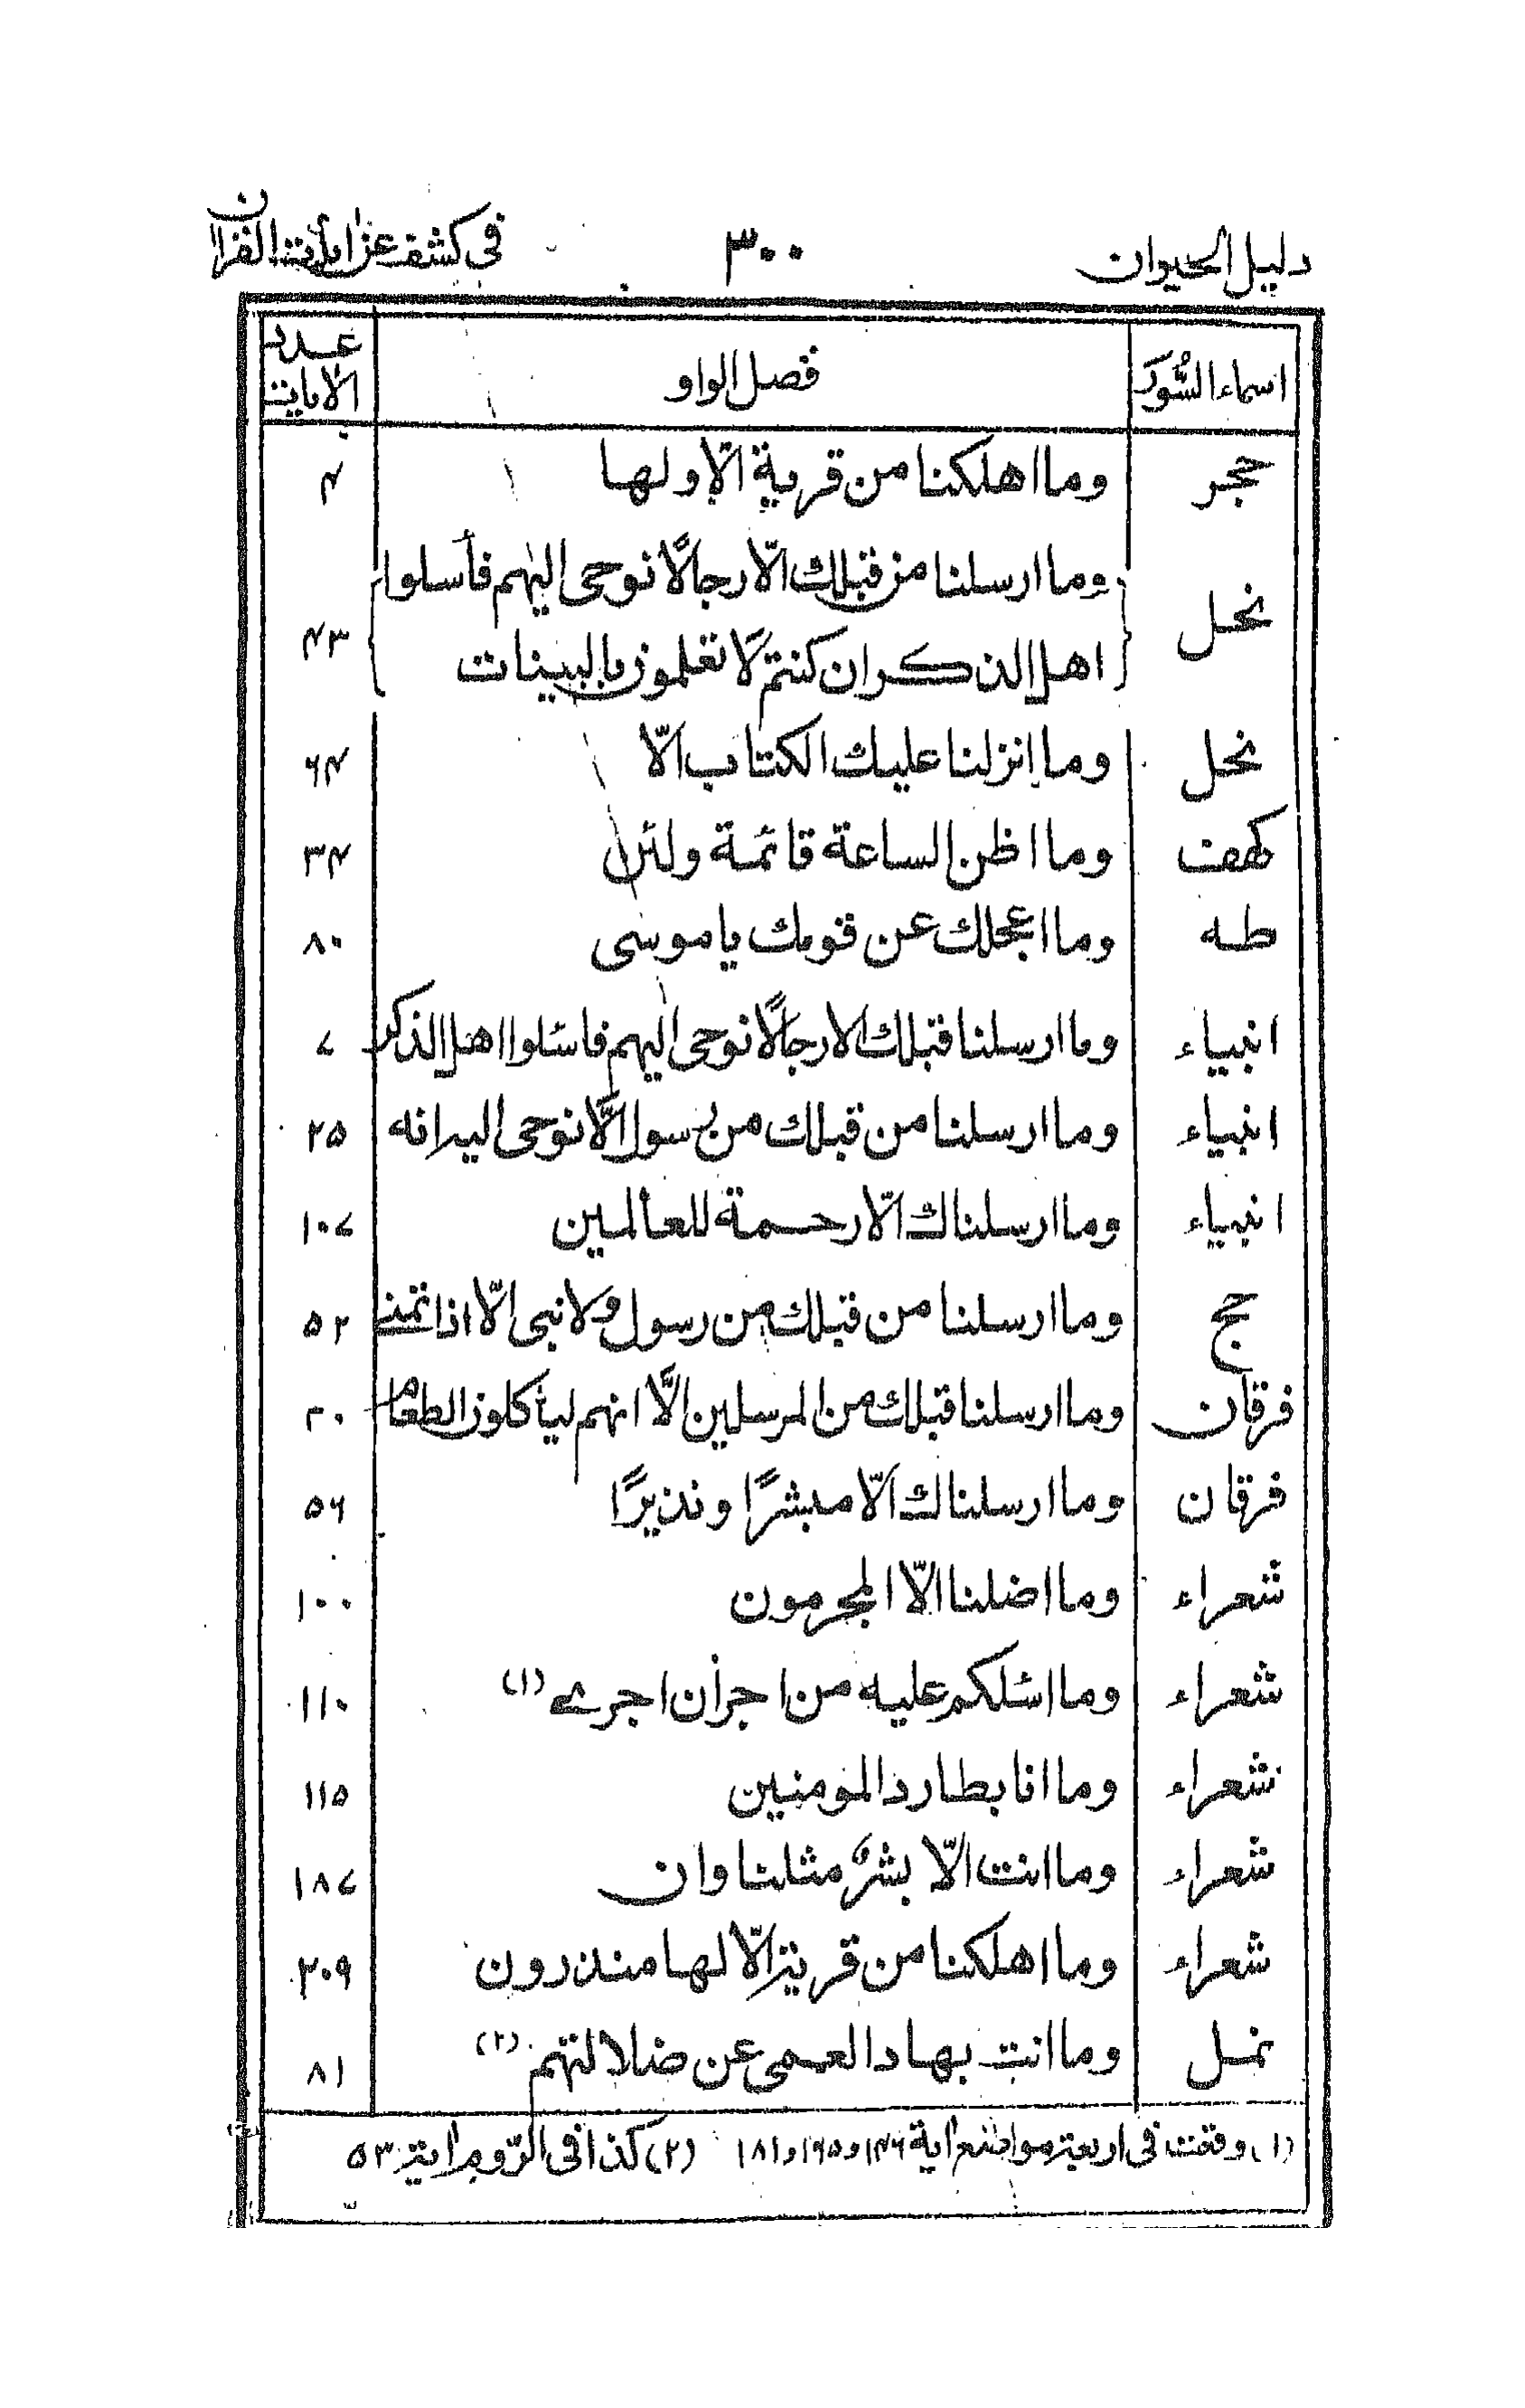 دليل الحيوان ٣٠٠ فى كشف عن ايات القران
اسماء السُّور فصل الواو عدد الايات
حجر وما اهلكنا من قرية الا ولها ۴
نحل وما ارسلنا من قبلك الّا رجالًا نوحى اليهم فأسلوا
اهل الذكر ان كنتم لا تعلمون بالبينات ۴۳
نحل وما انزلنا عليك الكتاب الّا ۶۴
كهف وما اظن الساعة قائمة ولئن ۳۴
طه وما اعجلك عن قومك يا موسى ۸۰
انبياء وما ارسلنا قبلك الا رجالًا نوحى اليهم فاسئلوا اهل الذكر ۷
انبياء وما ارسلنا من قبلك من رسول الّا نوحى اليه انه ۲۵
انبياء وما ارسلناك الّا رحمة للعالمين ۱۰۷
حج وما ارسلنا من قبلك من رسول ولا نبى الّا اذا تمنى ۵۲
فرقان وما ارسلنا قبلك من المرسلين الّا انهم ليأكلون الطعام ۲۰
فرقان وما ارسلناك الّا مبشرًا ونذيرًا ۵۶
شعراء وما اضلنا الّا المجرمون ۱۰۰
شعراء وما اسئلكم عليه من اجر أن اجرى (۱) ۱۱۰
شعراء وما انا بطارد المومنين ۱۱۵
شعراء وما انت الّا بشرٌ مثلنا وان ۱۸۷
شعراء وما اهلكنا من قرية الّا لها منذرون ۲۰۹
نمل وما انت بهاد العمى عن ضلالتهم (۲) ۸۱
(۱) وقعت فى اربعة مواضع اية ۱۴۶ و۱۶۵ و۱۸۱ (۲) كذا فى الرّوم اية ۵۳